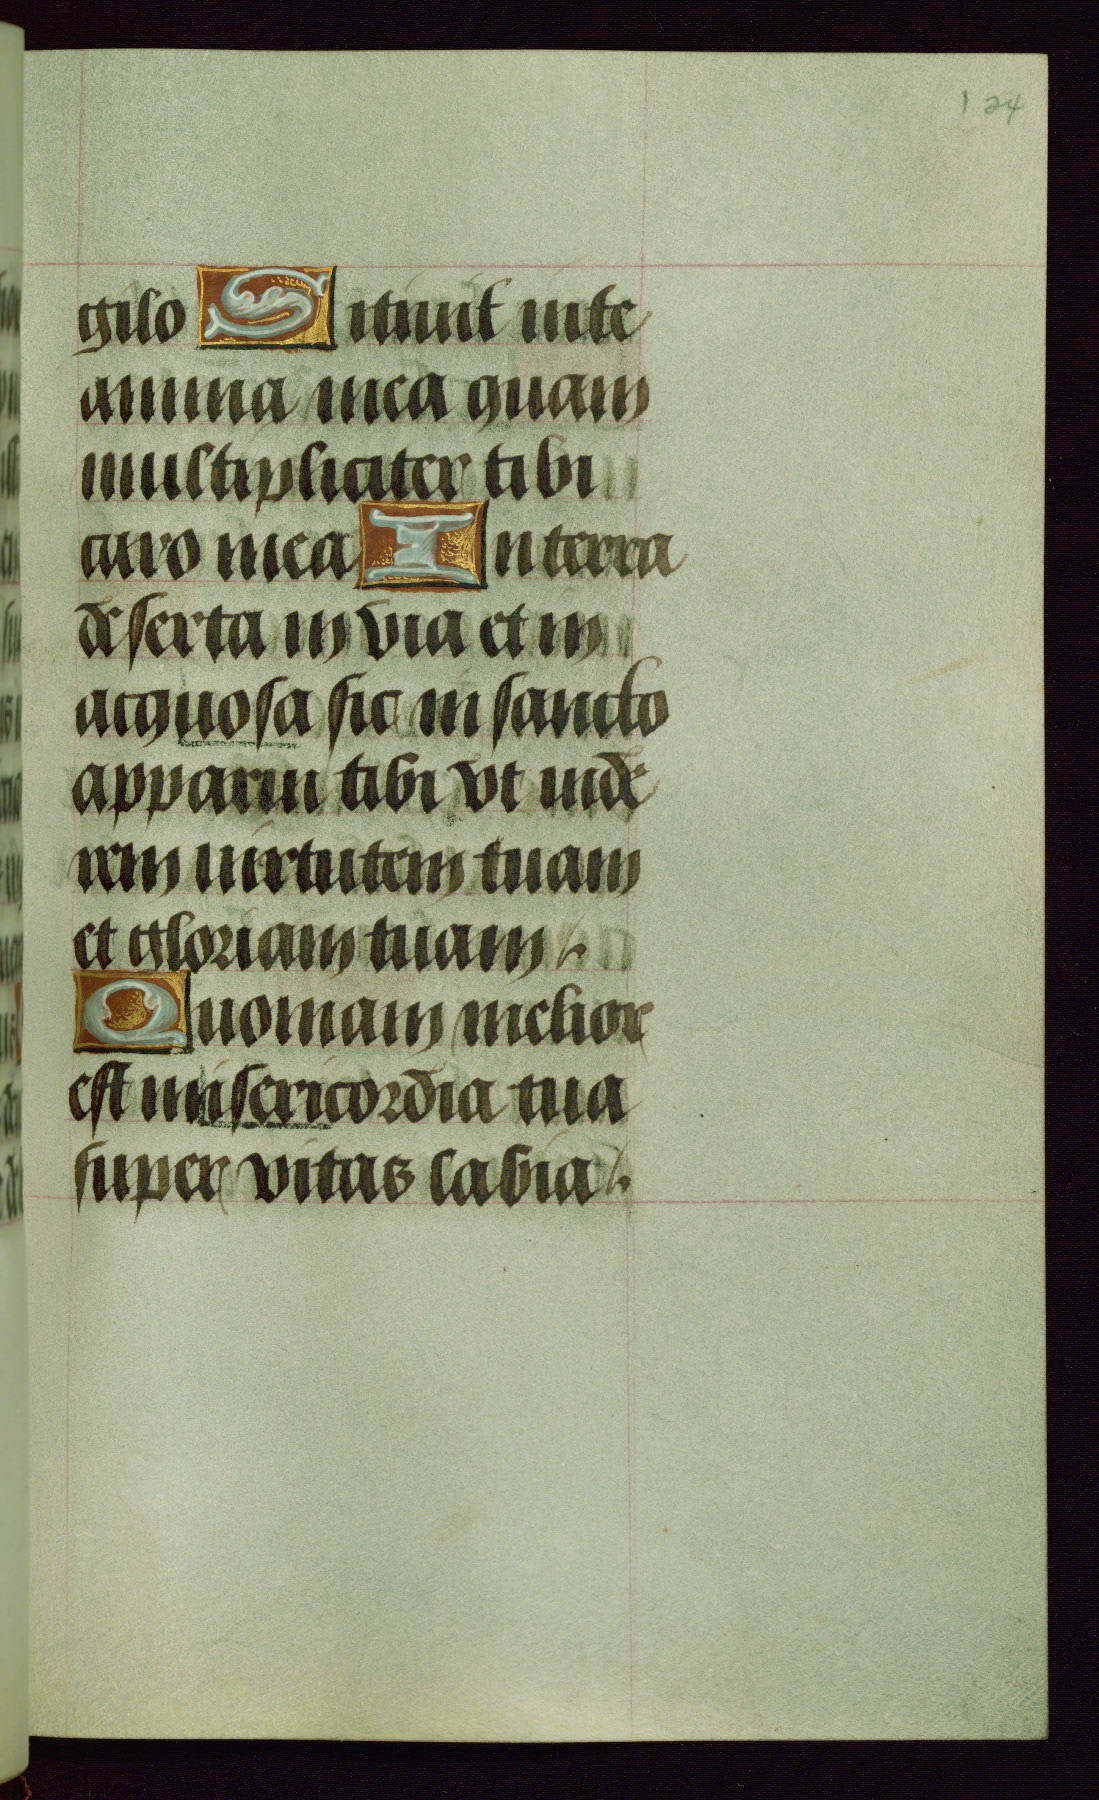 124
gilo Sitiuit inte
anima mea quam
multipliciter tibi
caro mea In terra
deserta in via et in
acquosa sic in sancto
apparui tibi vt uide
rem uirtutem tuam
et gloriam tuam
Quoniam melior
est misericordia tua
super vitas labia